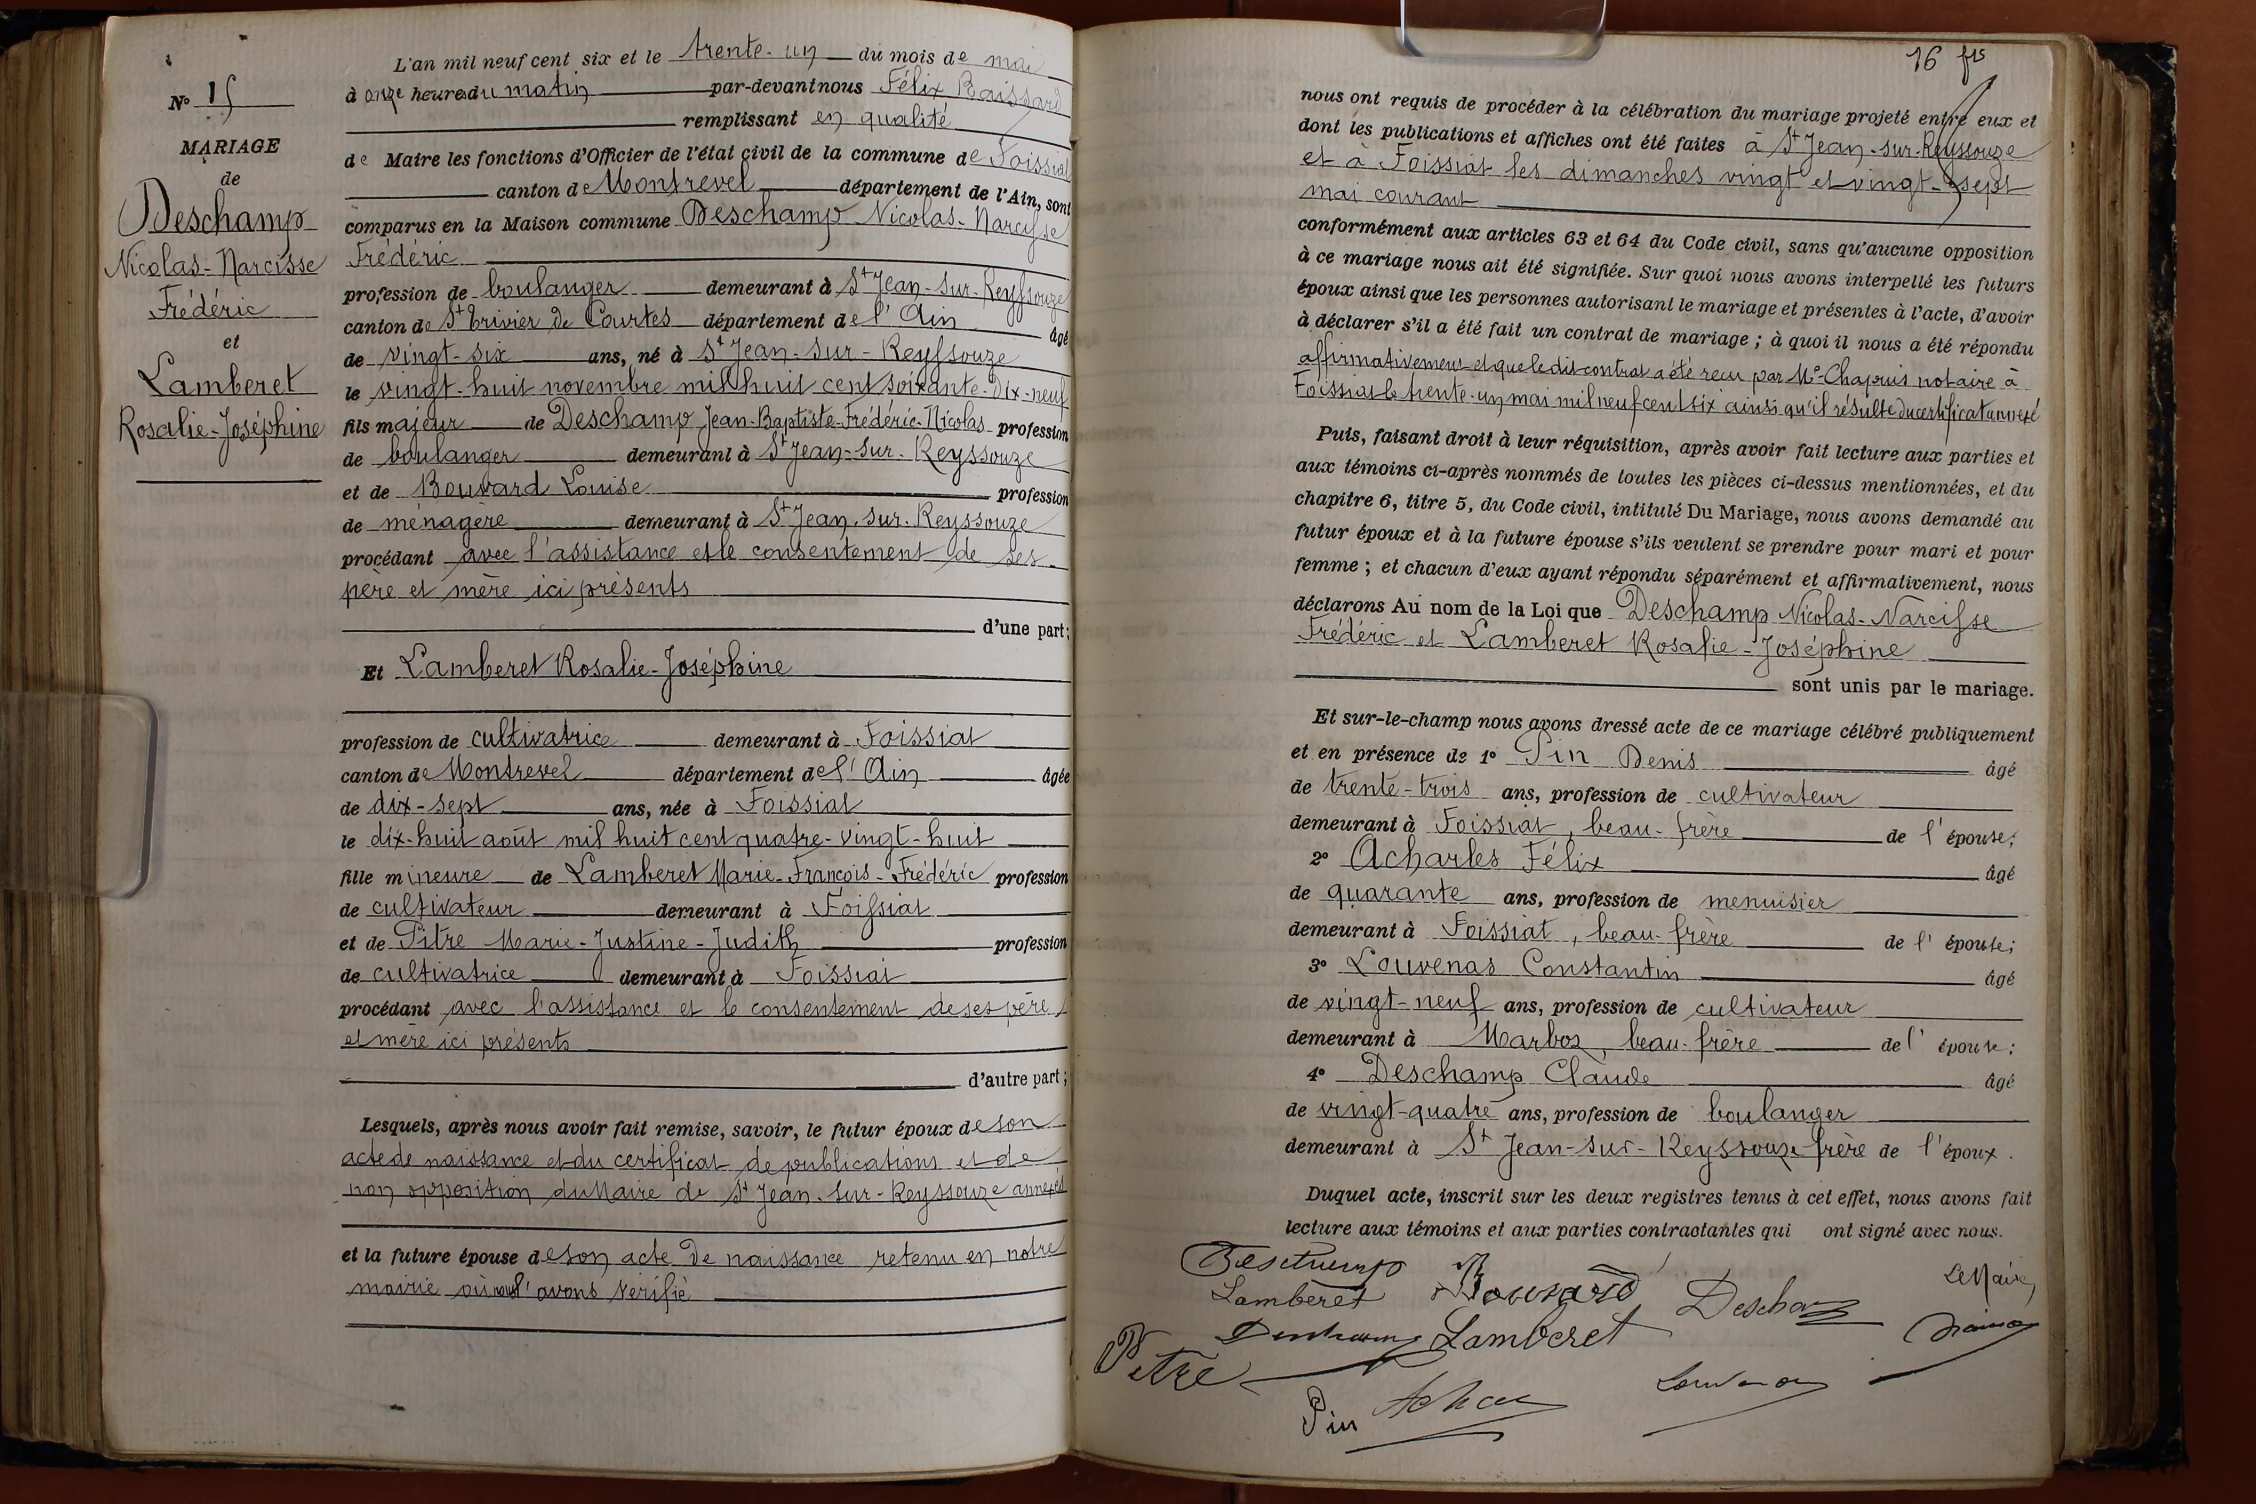 N° 15
MARIAGE
de
Deschamp
Nicolas-Narcisse
Frédéric
et
Lamberet
Rosalie-Joséphine
L'an mil neuf cent six et le trente-un du mois de mai
à onze heures du matin par-devant nous Félix
remplissant en qualité
de Maire les fonctions d'Officier de l'état civil de la commune de Foissiat
canton de Montrevel département de l'Ain, sont
comparus en la Maison commune Deschamp Nicolas-Narcisse
Frédéric
profession de boulanger demeurant à St Jean-sur-Reyssouze
canton de St Trivier de Courtes département de l'Ain âgé
de vingt-six ans, né à St Jean-sur-Reyssouze
le vingt-huit novembre mil huit cent soixante-dix-neuf
fils majeur de Deschamp Jean-Baptiste-Frédéric-Nicolas profession
de boulanger demeurant à St Jean-sur-Reyssouze
et de Bouvard Louise profession
de ménagère demeurant à St Jean-sur-Reyssouze
procédant avec l'assistance et le consentement de ses
père et mère ici présents
d'une part;
Et Lamberet Rosalie-Joséphine
profession de cultivatrice demeurant à Foissiat
canton de Montrevel département de l'Ain âgée
de dix-sept ans, née à Foissiat
le dix-huit août mil huit cent quatre-vingt-huit
fille mineure de Lamberet Marie-François-Frédéric profession
de cultivateur demeurant à Foissiat
et de Pitre Marie-Justine-Judith profession
de cultivatrice demeurant à Foissiat
procédant avec l'assistance et le consentement de ses père
et mère ici présents
d'autre part;
Lesquels, après nous avoir fait remise, savoir, le futur époux de son
acte de naissance et du certificat de publications et de
non opposition du Maire de St Jean-sur-Reyssouze annexés
et la future épouse de son acte de naissance retenu en notre
mairie où nous l'avons vérifié
16 fts
nous ont requis de procéder à la célébration du mariage projeté entre eux et
dont les publications et affiches ont été faites à St Jean-sur-Reyssouze
et à Foissiat les dimanches vingt et vingt-sept
mai courant
conformément aux articles 63 et 64 du Code civil, sans qu'aucune opposition
à ce mariage nous ait été signifiée. Sur quoi nous avons interpellé les futurs
époux ainsi que les personnes autorisant le mariage et présentes à l'acte, d'avoir
à déclarer s'il a été fait un contrat de mariage; à quoi il nous a été répondu
affirmativement et que le dit contrat a été reçu par Me Chapuis notaire à
Foissiat le trente-un mai mil neuf cent six ainsi qu'il résulte du certificat annexé
Puis, faisant droit à leur réquisition, après avoir fait lecture aux parties et
aux témoins ci-après nommés de toutes les pièces ci-dessus mentionnées, et du
chapitre 6, titre 5, du Code civil, intitulé Du Mariage, nous avons demandé au
futur époux et à la future épouse s'ils veulent se prendre pour mari et pour
femme; et chacun d'eux ayant répondu séparément et affirmativement, nous
déclarons Au nom de la Loi que Deschamp Nicolas-Narcisse
Frédéric et Lamberet Rosalie-Joséphine
sont unis par le mariage.
Et sur-le-champ nous avons dressé acte de ce mariage célébré publiquement
et en présence de 1° Pin Denis âgé
de trente-trois ans, profession de cultivateur
demeurant à Foissiat, beau-frère de l'épouse;
2° Acharles Félix âgé
de quarante ans, profession de menuisier
demeurant à Foissiat, beau-frère de l'épouse;
3° Louvenas Constantin âgé
de vingt-neuf ans, profession de cultivateur
demeurant à Marboz, beau-frère de l'épouse;
4° Deschamp Claude âgé
de vingt-quatre ans, profession de boulanger
demeurant à St Jean-sur-Reyssouze frère de l'époux.
Duquel acte, inscrit sur les deux registres tenus à cet effet, nous avons fait
lecture aux témoins et aux parties contractantes qui ont signé avec nous.
Deschamp Bouvard Le Maire,
Lamberet Deschamp
Deschamp Lamberet
Pitre
Louvenas
Pin